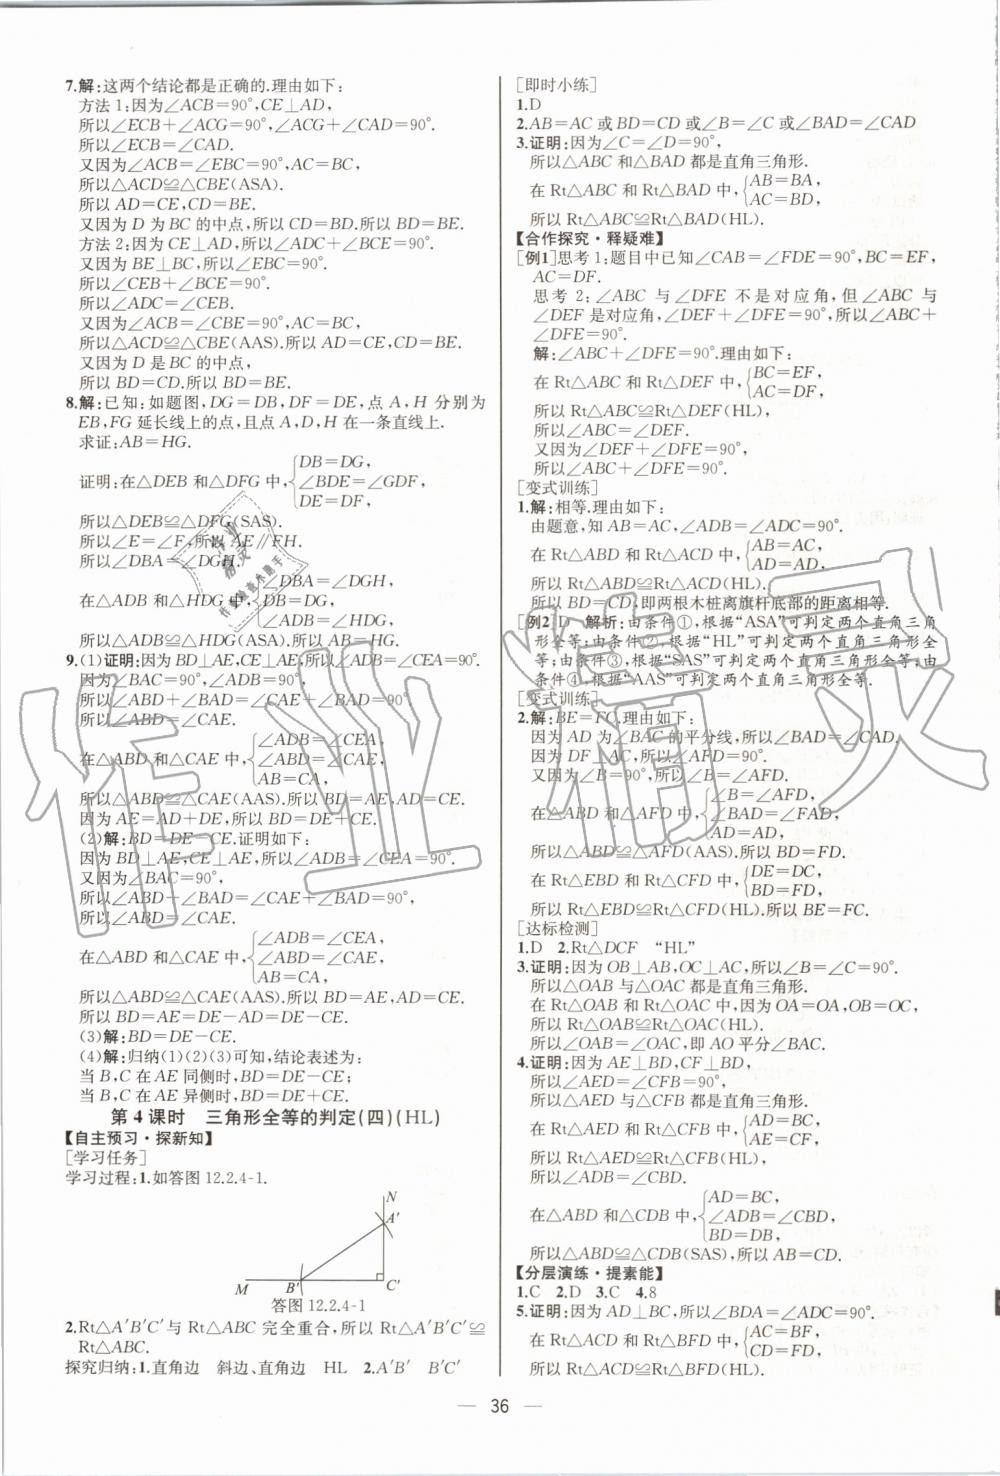 7.解:这两个结论都是正确的.理由如下:
方法1:因为∠ACB=90°,CE⊥AD,
所以∠ECB+∠ACG=90°,∠ACG+∠CAD=90°.
所以∠ECB=∠CAD.
又因为∠ACB=∠EBC=90°,AC=BC,
所以△ACD≌△CBE(ASA).
所以AD=CE,CD=BE.
又因为D为BC的中点,所以CD=BD.所以BD=BE.
方法2:因为CE⊥AD,所以∠ADC+∠BCE=90°.
又因为BE⊥BC,所以∠EBC=90°.
所以∠CEB+∠BCE=90°.
所以∠ADC=∠CEB.
又因为∠ACB=∠CBE=90°,AC=BC,
所以△ACD≌△CBE(AAS).所以AD=CE,CD=BE.
又因为D是BC的中点,
所以BD=CD.所以BD=BE.
8.解:已知:如题图,DG=DB,DF=DE,点A,H分别为
EB,FG延长线上的点,且点A,D,H在一条直线上.
求证:AB=HG.
证明:在△DEB和△DFG中,{DB=DG,
∠BDE=∠GDF,
DE=DF,
所以△DEB≌△DFG(SAS).
所以∠E=∠F,所以AE∥FH.
所以∠DBA=∠DGH.
在△ADB和△HDG中,{∠DBA=∠DGH,
DB=DG,
∠ADB=∠HDG,
所以△ADB≌△HDG(ASA).所以AB=HG.
9.(1)证明:因为BD⊥AE,CE⊥AE,所以∠ADB=∠CEA=90°.
因为∠BAC=90°,∠ADB=90°,
所以∠ABD+∠BAD=∠CAE+∠BAD=90°.
所以∠ABD=∠CAE.
在△ABD和△CAE中,{∠ADB=∠CEA,
∠ABD=∠CAE,
AB=CA,
所以△ABD≌△CAE(AAS).所以BD=AE,AD=CE.
因为AE=AD+DE,所以BD=DE+CE.
(2)解:BD=DE-CE.证明如下:
因为BD⊥AE,CE⊥AE,所以∠ADB=∠CEA=90°.
又因为∠BAC=90°,
所以∠ABD+∠BAD=∠CAE+∠BAD=90°.
所以∠ABD=∠CAE.
在△ABD和△CAE中,{∠ADB=∠CEA,
∠ABD=∠CAE,
AB=CA,
所以△ABD≌△CAE(AAS).所以BD=AE,AD=CE.
所以BD=AE=DE-AD=DE-CE.
(3)解:BD=DE-CE.
(4)解:归纳(1)(2)(3)可知,结论表述为:
当B,C在AE同侧时,BD=DE-CE;
当B,C在AE异侧时,BD=DE+CE.
第4课时 三角形全等的判定(四)(HL)
【自主预习·探新知】
[学习任务]
学习过程:1.如答图12.2.4-1.
N
A′
M B′ C′
答图12.2.4-1
2.Rt△A′B′C′与Rt△ABC完全重合,所以Rt△A′B′C′≌
Rt△ABC.
探究归纳:1.直角边 斜边、直角边 HL 2.A′B′ B′C′
[即时小练]
1.D
2.AB=AC或BD=CD或∠B=∠C或∠BAD=∠CAD
3.证明:因为∠C=∠D=90°,
所以△ABC和△BAD都是直角三角形.
在Rt△ABC和Rt△BAD中,{AB=BA,
AC=BD,
所以Rt△ABC≌Rt△BAD(HL).
【合作探究·释疑难】
[例1]思考1:题目中已知∠CAB=∠FDE=90°,BC=EF,
AC=DF.
思考2:∠ABC与∠DFE不是对应角,但∠ABC与
∠DEF是对应角,∠DEF+∠DFE=90°,所以∠ABC+
∠DFE=90°.
解:∠ABC+∠DFE=90°.理由如下:
在Rt△ABC和Rt△DEF中,{BC=EF,
AC=DF.
所以Rt△ABC≌Rt△DEF(HL),
所以∠ABC=∠DEF.
又因为∠DEF+∠DFE=90°,
所以∠ABC+∠DFE=90°.
[变式训练]
1.解:相等.理由如下:
由题意,知AB=AC,∠ADB=∠ADC=90°.
在Rt△ABD和Rt△ACD中,{AB=AC,
AD=AD,
所以Rt△ABD≌Rt△ACD(HL).
所以BD=CD,即两根木桩离旗杆底部的距离相等.
[例2]D 解析:由条件①,根据“ASA”可判定两个直角三角
形全等;由条件②,根据“HL”可判定两个直角三角形全
等;由条件③,根据“SAS”可判定两个直角三角形全等;由
条件④,根据“AAS”可判定两个直角三角形全等.
[变式训练]
2.解:BE=FC.理由如下:
因为AD为∠BAC的平分线,所以∠BAD=∠CAD,
因为DF⊥AC,所以∠AFD=90°.
又因为∠B=90°,所以∠B=∠AFD.
在△ABD和△AFD中,{∠B=∠AFD,
∠BAD=∠FAD,
AD=AD,
所以△ABD≌△AFD(AAS).所以BD=FD.
在Rt△EBD和Rt△CFD中,{DE=DC,
BD=FD,
所以Rt△EBD≌Rt△CFD(HL).所以BE=FC.
[达标检测]
1.D 2.Rt△DCF “HL”
3.证明:因为OB⊥AB,OC⊥AC,所以∠B=∠C=90°.
所以△OAB与△OAC都是直角三角形.
在Rt△OAB和Rt△OAC中,因为OA=OA,OB=OC,
所以Rt△OAB≌Rt△OAC(HL).
所以∠OAB=∠OAC,即AO平分∠BAC.
4.证明:因为AE⊥BD,CF⊥BD,
所以∠AED=∠CFB=90°.
所以△AED与△CFB都是直角三角形.
在Rt△AED和Rt△CFB中,{AD=BC,
AE=CF,
所以Rt△AED≌Rt△CFB(HL),
所以∠ADE=∠CBD.
在△ABD和△CDB中,{AD=BC,
∠ADB=∠CBD,
BD=DB,
所以△ABD≌△CDB(SAS),所以AB=CD.
【分层演练·提素能】
1.C 2.D 3.C 4.8
5.证明:因为AD⊥BC,所以∠BDA=∠ADC=90°.
在Rt△ACD和Rt△BFD中,{AC=BF,
CD=FD.
所以Rt△ACD≌Rt△BFD(HL),
— 36 —
作业精灵